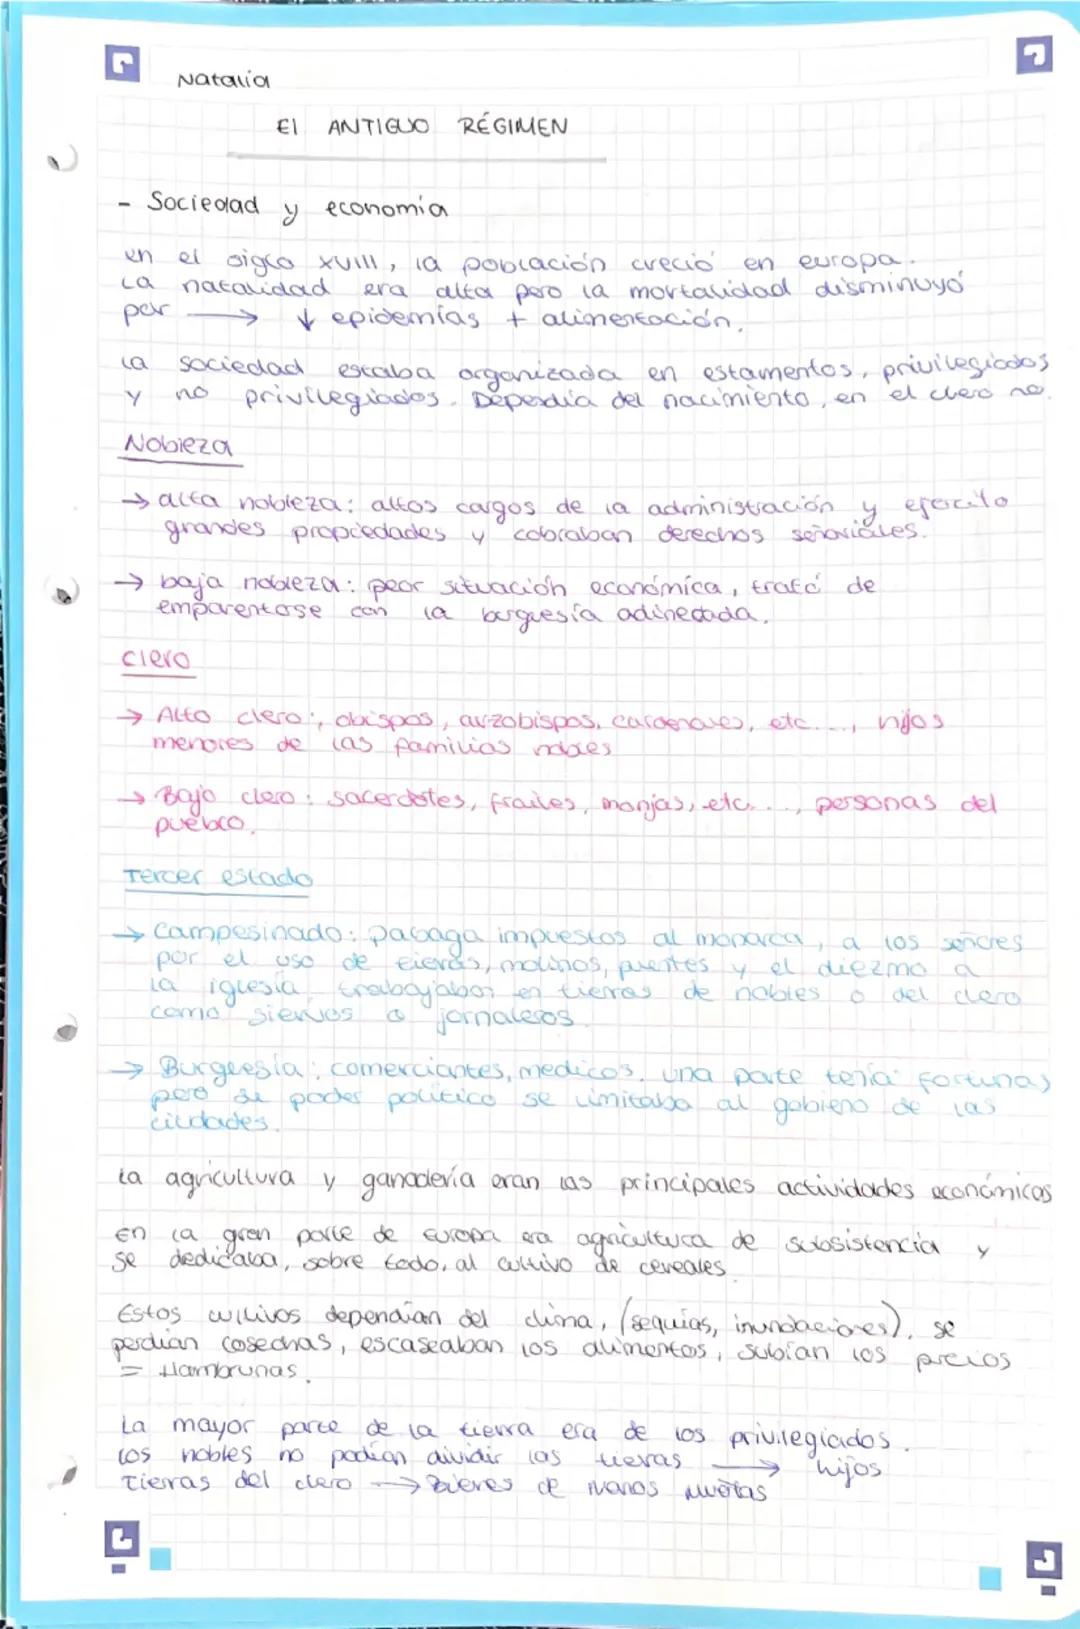 Natalia
El ANTIGUO RÉGIMEN
- Sociedad y economía
en el siglo XVIII, la población creció en europa.
La natalidad era alta pero la mortalidad disminuyó
por → ↓ epidemias + alimentación.
la sociedad estaba organizada en estamentos, privilegiados
y no privilegiados. Dependía del nacimiento, en el clero no.
Nobleza
→ alta nobleza: altos cargos de la administración y ejercito
grandes propiedades y cobraban derechos señoriales.
→ baja nobleza: peor situación económica, trató de
emparentase con la burguesía adinerada.
Clero
→ Alto clero:, obispos, arzobispos, cardenales, etc...., hijos
menores de las familias nobles
→ Bajo clero: sacerdotes, frailes, monjas, etc...., personas del
pueblo.
Tercer estado
→ Campesinado: pabaga impuestos al monarca, a los señores
por el uso de tierras, molinos, puentes y el diezmo a
la iglesia trabajaban en tierras de nobles o del clero
como siervos o jornaleros
→ Burguesía: comerciantes, medicos. una parte tenía fortunas
pero su poder político se limitaba al gobierno de las
ciudades.
La agricultura y ganadería eran las principales actividades económicas
En la gran parte de Europa era agricultura de subsistencia y
se dedicaba, sobre todo, al cultivo de cereales.
Estos cultivos dependían del clima, (sequías, inundaciones), se
perdían cosechas, escaseaban los alimentos, subían los precios
= Hambrunas.
La mayor parte de la tierra era de los privilegiados.
los nobles no podían dividir las tierras → hijos
Tierras del clero → Bienes de manos muertas